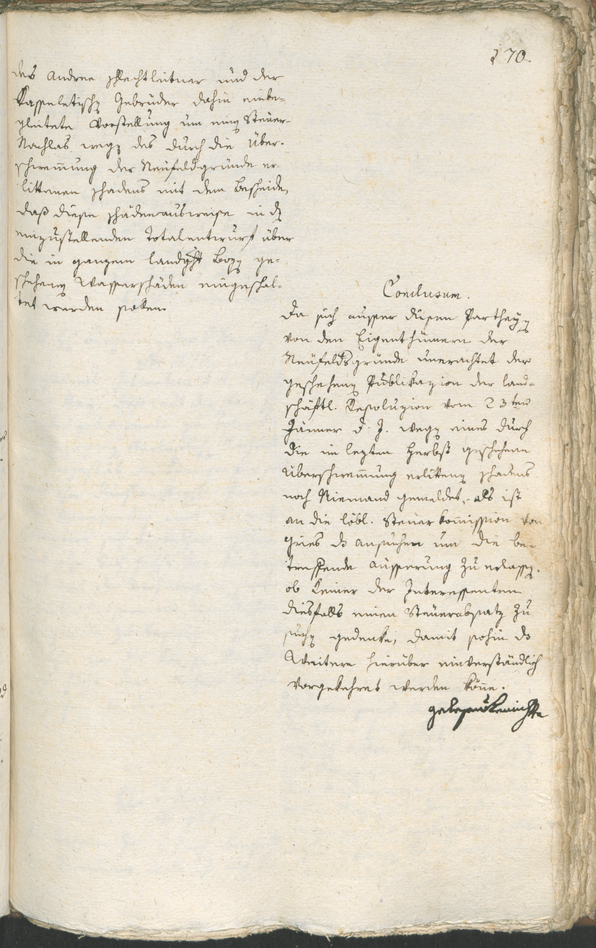 170.
des Andree Schlechtleitner und der
Gebrüder dahin einbe-
gleitete Vorstellung um einen Steuer-
Nachlas wegen des durch die Über-
schwemmung der Neufeldgründe er-
littenen Schadens mit dem Bescheide,
daß diese Schädenausweise in den
einzustellenden Totalentwurf über
die in ganzem Landgericht Bozen ge-
schehenen Wasserschäden eingeschal-
tet werden sollen.
Conclusum.
Da sich ausser diesen Partheyen
von den Eigenthümern der
Neufeldsgründe unerachtet der
geschehenen Publikazion der land-
schäftl. Resoluzion vom 23ten
Jänner d. J. wegen eines durch
die im lezten Herbst geschehene
Überschwemmung erlittenen Schadens
noch Niemand gemeldet, als ist
an die löbl. Steuerkommission von
Gries das Ansuchen um die be-
treffende Äusserung zu erlassen,
ob keiner der Interessenten
diesfalls einen Steuerabsatz zu
suchen gedenke, damit sohin das
Weitere hierüber einverständlich
vorgekehret werden könne.